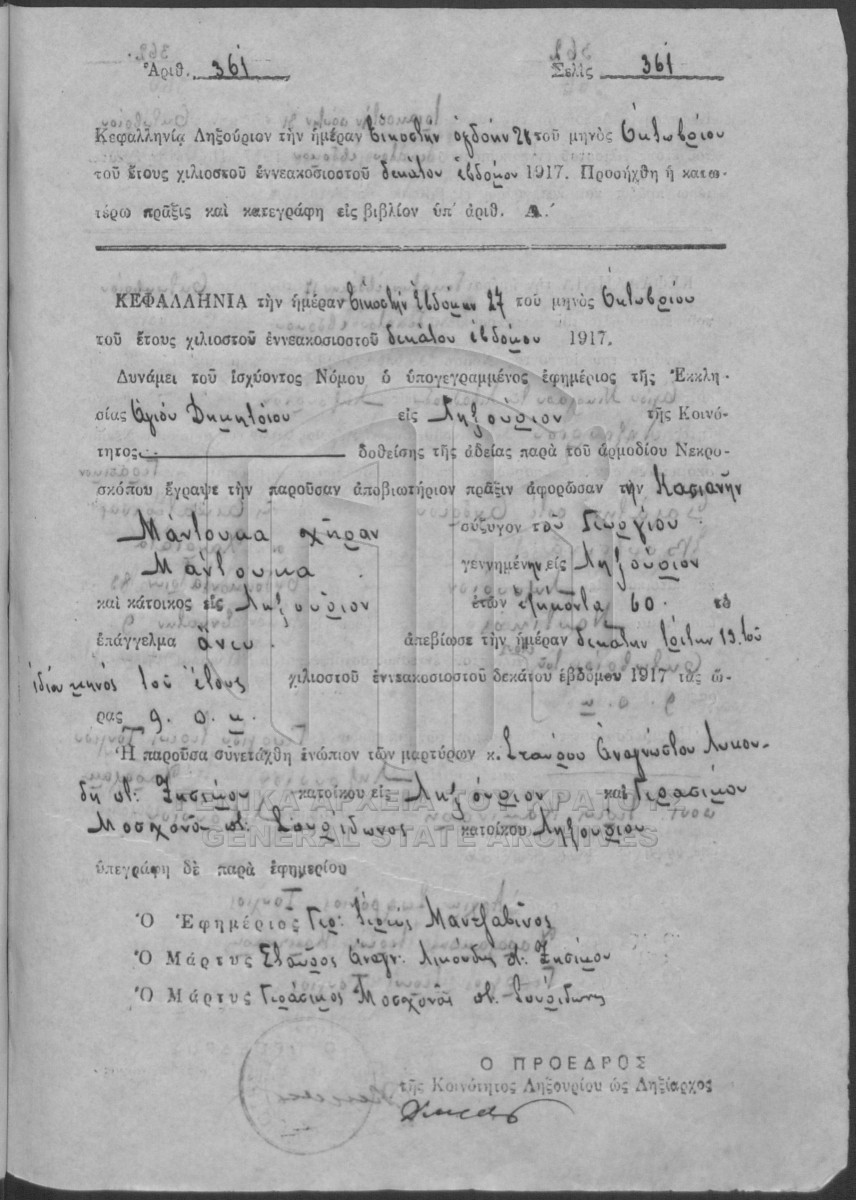 Ἀριθ. 361 Σελὶς 361
Κεφαλληνίᾳ Ληξούριον τὴν ἡμέραν Εἰκοστὴν ὀγδόην 28 τοῦ μηνὸς Ὀκτωβρίου
τοῦ ἔτους χιλιοστοῦ ἐννεακοσιοστοῦ δεκάτου ἑβδόμου 1917. Προσήχθη ἡ κατω-
τέρω πρᾶξις καὶ κατεγράφη εἰς βιβλίον ὑπ' ἀριθ. Α.'
ΚΕΦΑΛΛΗΝΙΑ τὴν ἡμέραν Εἰκοστὴν ἑβδόμην 27 τοῦ μηνὸς Ὀκτωβρίου
τοῦ ἔτους χιλιοστοῦ ἐννεακοσιοστοῦ δεκάτου ἑβδόμου 1917.
Δυνάμει τοῦ ἰσχύοντος Νόμου ὁ ὑπογεγραμμένος ἐφημέριος τῆς Ἐκκλη-
σίας Ἁγίου Δημητρίου εἰς Ληξούριον τῆς Κοινό-
τητος δοθείσης τῆς ἀδείας παρὰ τοῦ ἁρμοδίου Νεκρο-
σκόπου ἔγραψε τὴν παροῦσαν ἀποβιωτήριον πρᾶξιν ἀφορῶσαν τὴν Κασιανὴν
Μάντουκα χήραν σύζυγον τοῦ Γεωργίου
Μάντουκα γεννημένην εἰς Ληξούριον
καὶ κάτοικος εἰς Ληξούριον ἐτῶν ἑξήκοντα 60. τὸ
ἐπάγγελμα ἄνευ. ἀπεβίωσε τὴν ἡμέραν δεκάτην τρίτην 13. τοῦ
ἰδίου μηνὸς τοῦ ἔτους χιλιοστοῦ ἐννεακοσιοστοῦ δεκάτου ἑβδόμου 1917 τὰς ὥ-
ρας 9. π. μ.
Ἡ παροῦσα συνετάχθη ἐνώπιον τῶν μαρτύρων κ. Σταύρου Ἀναγνώστου Λυκού-
δη Ζησίμου κατοίκου εἰς Ληξούριον καὶ Γερασίμου
Μοσχονᾶ Σπυρίδωνος κατοίκου Ληξουρίου
ὑπεγράφη δὲ παρὰ ἐφημερίου
Ὁ Ἐφημέριος Γερ. Ἱερεὺς Μαντζαβῖνος
Ὁ Μάρτυς Σταῦρος Ἀναγν. Λυκούδης Ζησίμου
Ὁ Μάρτυς Γεράσιμος Μοσχονᾶς Σπυρίδωνος
Ο ΠΡΟΕΔΡΟΣ
τῆς Κοινότητος Ληξουρίου ὡς Ληξίαρχος
ΓΕΝΙΚΑ ΑΡΧΕΙΑ ΤΟΥ ΚΡΑΤΟΥΣ
GENERAL STATE ARCHIVES